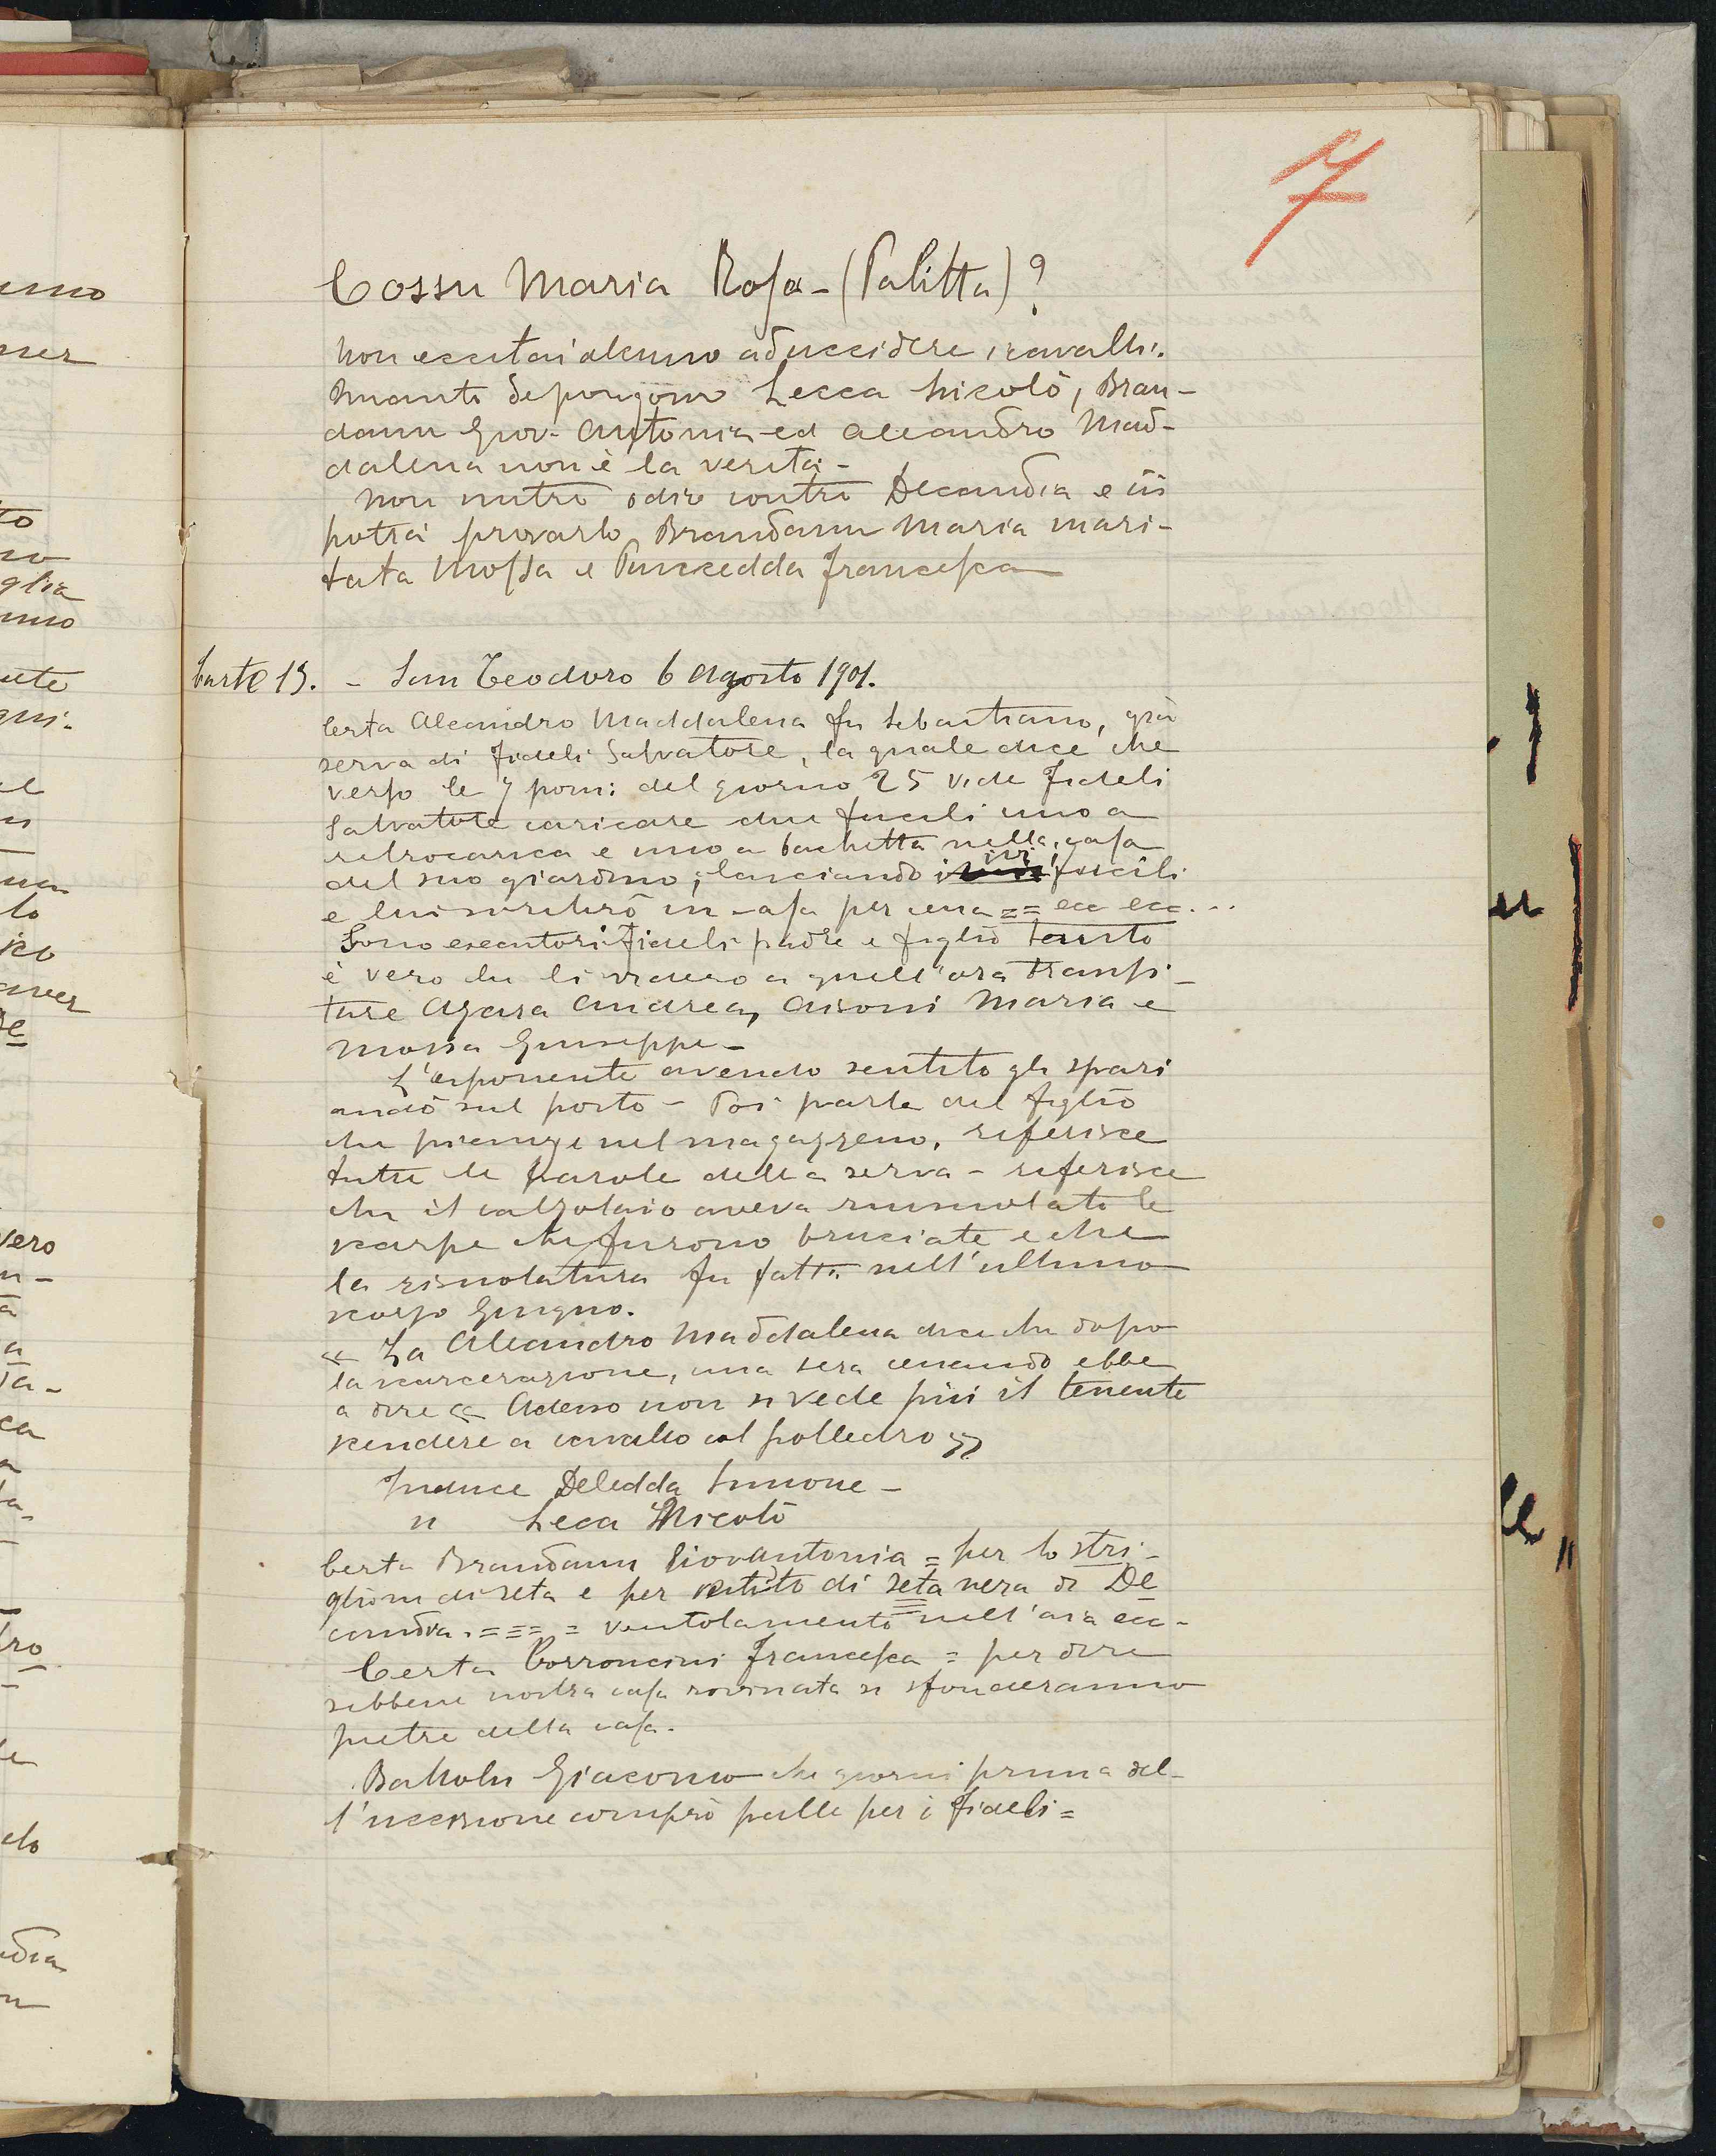 7
Cossu Maria Rosa - (Palitta)?
Non eccitai alcuno ad uccidere i cavalli.
Quanto depongono Lecca Nicolò, Bran-
danu Giov. Antonia ed Aleandro Mad-
dalena non è la verità -
Non nutro odio contro Decandia e ciò
potrà provarlo Brandanu Maria mari-
tata Mossa e Puxeddda Francesca
Carte 13. - San Teodoro 6 Agosto 1901.
Certa Aleandro Maddalena fu Sebastiano, già
serva di Fideli Salvatore, la quale dice che
verso le 7 pom: del giorno 25 vide Fideli
Salvatore caricare due fucili uno a
retrocarica e uno a bachetta nella casa
del suo giardino; lasciando ivi i fucili
e lui si ritirò in casa per cena == ecc ecc...
Sono esecutori Fideli padre e figlio tanto
è vero che li videro a quell'ora transi-
tare Azara Andrea, Aisoni Maria e
Mossa Giuseppe -
L'esponente avendo sentito gli spari
andò sul posto - Poi parla del figlio
che piange nel magazzeno, riferisce
tutte le parole della serva - riferisce
che il calzolaio aveva risuolato le
scarpe che furono bruciate e che
la risuolatura fu fatta nell'ultimo
scorso Giugno.
« La Aleandro Maddalena dice che dopo
la scarcerazione, una sera cenando ebbe
a dire « Adesso non si vede più il tenente
scendere a cavallo col polledro »
Induce Deledda Simone -
" Leca Nicolò
Certa Brandanu Giovantonia = per lo stri-
glione di seta e per vestito di seta nera di De
candia. = == = ventolamento nell'aia ecc -
Certa Corroncini Francesca = per dire
sebbene nostra casa rovinata si sfonderanno
pietre della casa.
Battolu Giacomo che giorni prima del-
l'uccisione comprò palle per i Fideli =